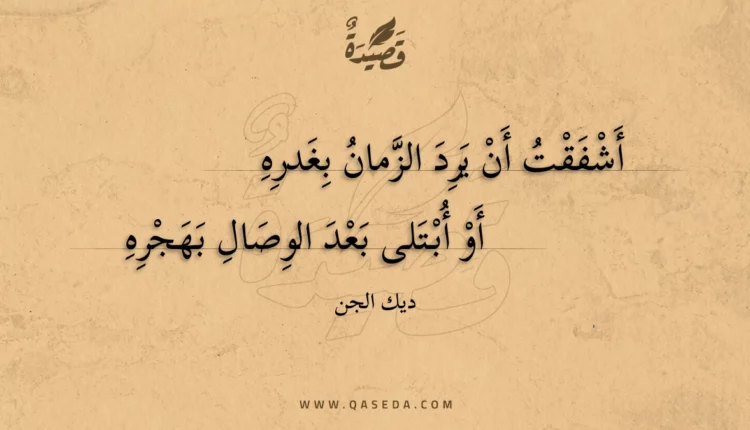 قَصِيدَةٌ
أَشْفَقْتُ أَنْ يَرِدَ الزَّمانُ بِغَدرِهِ
أَوْ أُبْتَلى بَعْدَ الوِصَالِ بَهَجْرِهِ
ديك الجن
WWW.QASEDA.COM